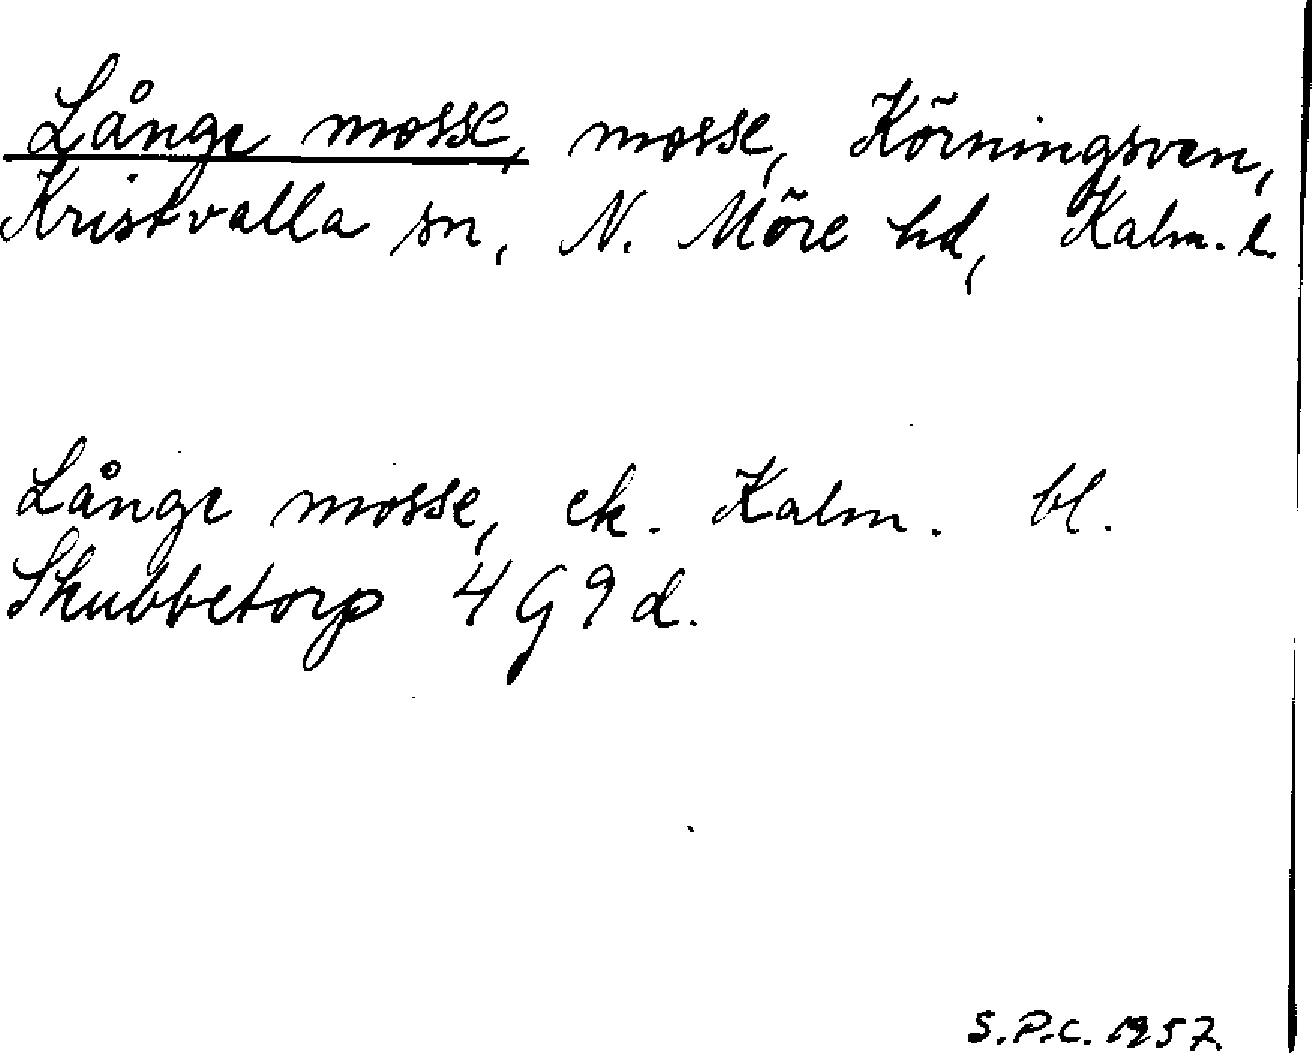 Långe mosse, mosse, Körningsven,
Kristvalla sn, N. Möre hd, Kalm. l.
Långe mosse, ek. Kalm. bl.
Skubbetorp 4G9d.
S.P.C. 1957